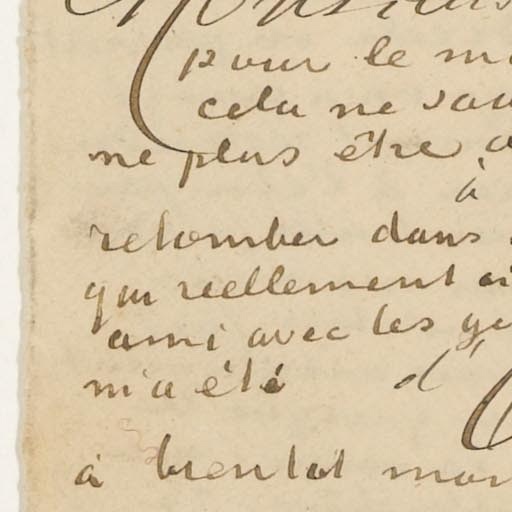 Monsieur
pour le
cela ne
ne plus être
à
retomber dans
qui reellement
ami avec les
m'a été d'
à bientot mon